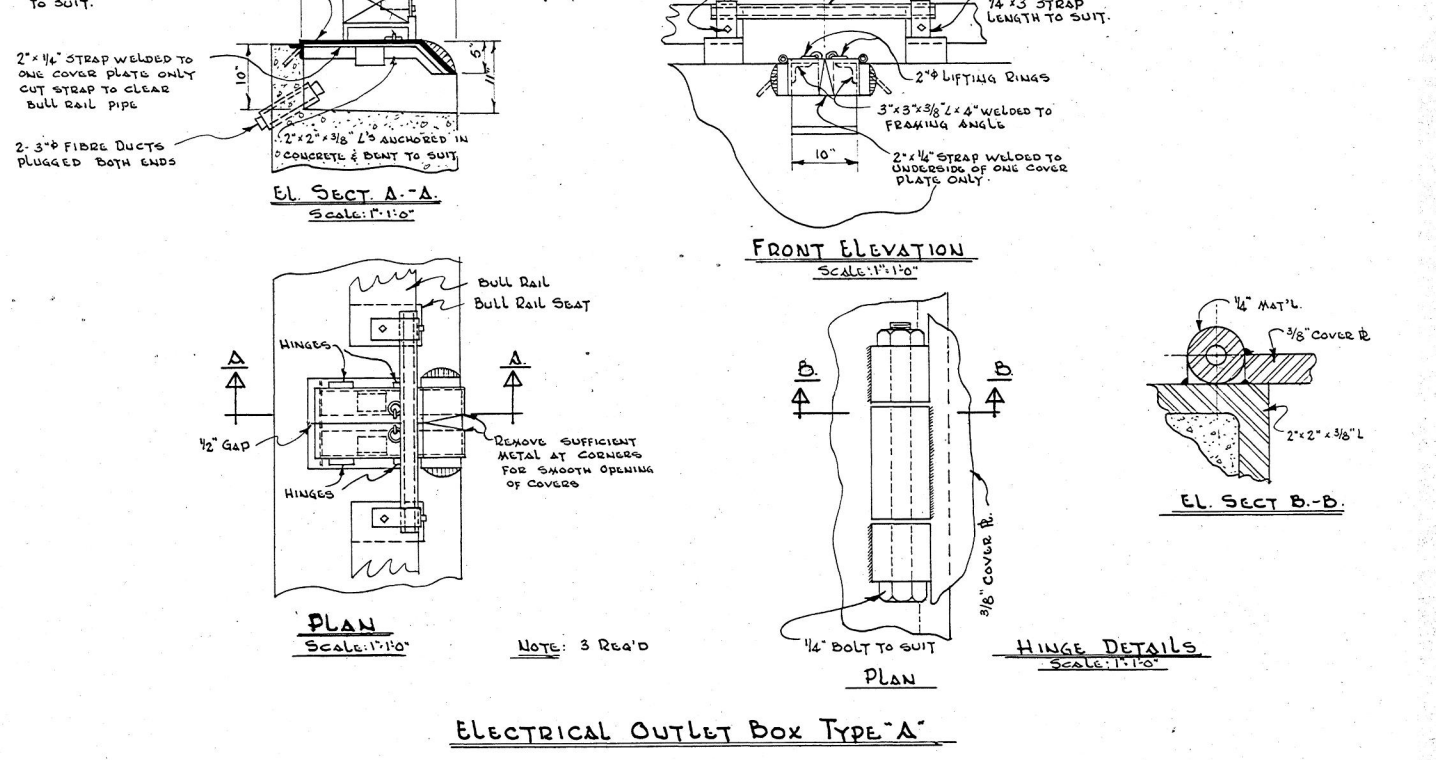 TO SUIT.
2" x 1/4" STRAP WELDED TO
ONE COVER PLATE ONLY
CUT STRAP TO CLEAR
BULL RAIL PIPE
10"
5"
11"
2 - 3"φ FIBRE DUCTS
PLUGGED BOTH ENDS
2" x 2" x 3/8" L'S ANCHORED IN
CONCRETE & BENT TO SUIT
EL. SECT. A.-A.
SCALE: 1"=1'-0"
1/4 x 3 STRAP
LENGTH TO SUIT.
2"φ LIFTING RINGS
3" x 3" x 3/8" L x 4" WELDED TO
FRAMING ANGLE
10"
2" x 1/4" STRAP WELDED TO
UNDERSIDE OF ONE COVER
PLATE ONLY.
FRONT ELEVATION
SCALE: 1"=1'-0"
BULL RAIL
BULL RAIL SEAT
HINGES
A.
A.
1/2" GAP
REMOVE SUFFICIENT
METAL AT CORNERS
FOR SMOOTH OPENING
OF COVERS
HINGES
PLAN
SCALE: 1"=1'-0"
NOTE: 3 REQ'D
B.
B.
3/8" COVER PL.
1/4" BOLT TO SUIT
PLAN
1/4" MAT'L.
3/8" COVER PL
2" x 2" x 3/8" L
EL. SECT B.-B.
HINGE DETAILS
SCALE: 1"=1'-0"
ELECTRICAL OUTLET BOX TYPE "A"